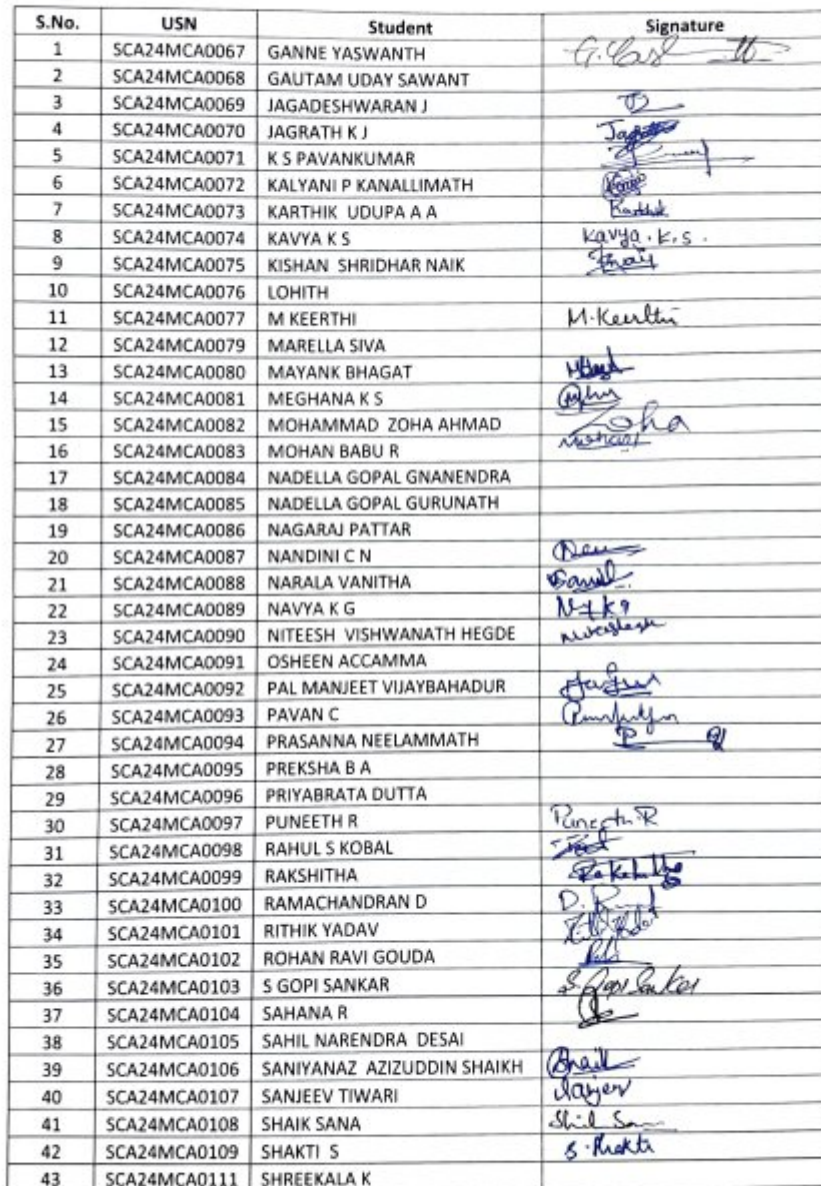 S.No. USN Student Signature
1 SCA24MCA0067 GANNE YASWANTH
2 SCA24MCA0068 GAUTAM UDAY SAWANT
3 SCA24MCA0069 JAGADESHWARAN J
4 SCA24MCA0070 JAGRATH K J
5 SCA24MCA0071 K S PAVANKUMAR
6 SCA24MCA0072 KALYANI P KANALLIMATH
7 SCA24MCA0073 KARTHIK UDUPA A A Karthik
8 SCA24MCA0074 KAVYA K S Kavya.K.S.
9 SCA24MCA0075 KISHAN SHRIDHAR NAIK
10 SCA24MCA0076 LOHITH
11 SCA24MCA0077 M KEERTHI M.Keerthi
12 SCA24MCA0079 MARELLA SIVA
13 SCA24MCA0080 MAYANK BHAGAT
14 SCA24MCA0081 MEGHANA K S
15 SCA24MCA0082 MOHAMMAD ZOHA AHMAD Zoha
16 SCA24MCA0083 MOHAN BABU R
17 SCA24MCA0084 NADELLA GOPAL GNANENDRA
18 SCA24MCA0085 NADELLA GOPAL GURUNATH
19 SCA24MCA0086 NAGARAJ PATTAR
20 SCA24MCA0087 NANDINI C N
21 SCA24MCA0088 NARALA VANITHA
22 SCA24MCA0089 NAVYA K G
23 SCA24MCA0090 NITEESH VISHWANATH HEGDE
24 SCA24MCA0091 OSHEEN ACCAMMA
25 SCA24MCA0092 PAL MANJEET VIJAYBAHADUR
26 SCA24MCA0093 PAVAN C
27 SCA24MCA0094 PRASANNA NEELAMMATH
28 SCA24MCA0095 PREKSHA B A
29 SCA24MCA0096 PRIYABRATA DUTTA
30 SCA24MCA0097 PUNEETH R Puneeth R
31 SCA24MCA0098 RAHUL S KOBAL
32 SCA24MCA0099 RAKSHITHA
33 SCA24MCA0100 RAMACHANDRAN D
34 SCA24MCA0101 RITHIK YADAV
35 SCA24MCA0102 ROHAN RAVI GOUDA
36 SCA24MCA0103 S GOPI SANKAR S Gopi Sankar
37 SCA24MCA0104 SAHANA R
38 SCA24MCA0105 SAHIL NARENDRA DESAI
39 SCA24MCA0106 SANIYANAZ AZIZUDDIN SHAIKH
40 SCA24MCA0107 SANJEEV TIWARI
41 SCA24MCA0108 SHAIK SANA
42 SCA24MCA0109 SHAKTI S S. Shakti
43 SCA24MCA0111 SHREEKALA K